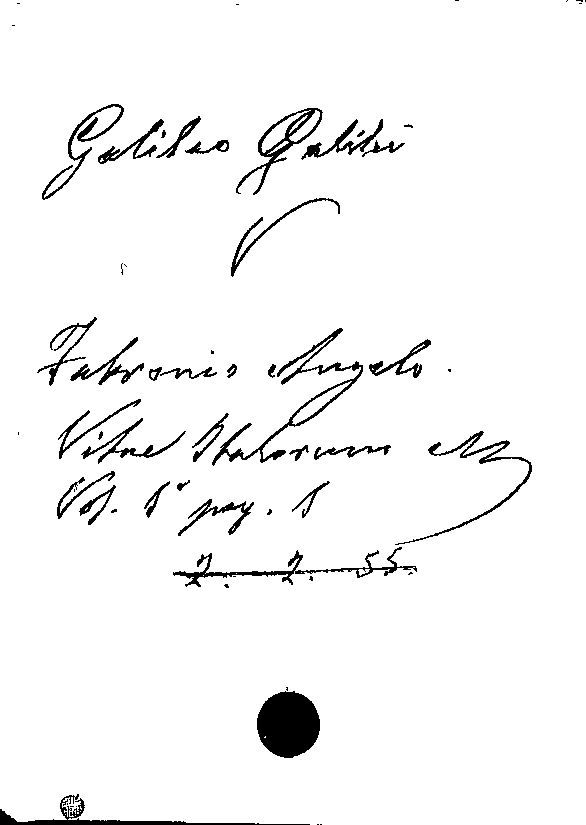 Galileo Galilei
V
Fabronio Angelo.
Vitae Italorum
Vol. 1º pag. 1
2. 2. 55.